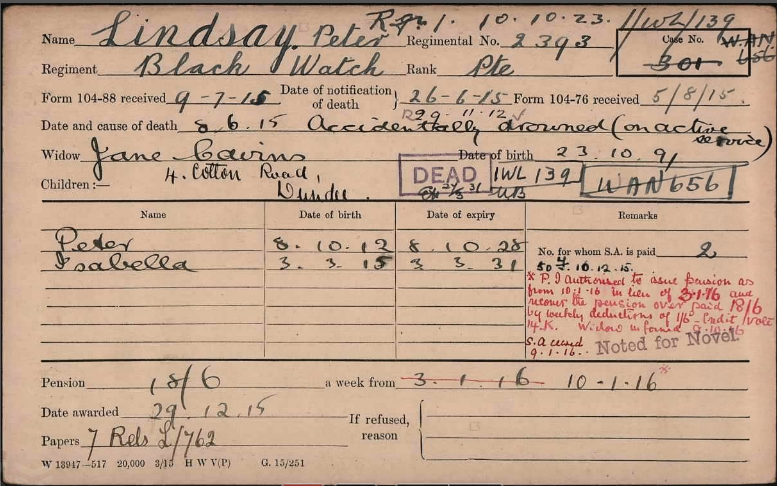 R 1. 10.10.23. 1WL/139
Name Lindsay, Peter Regimental No. 2393 Case No. W.AN 656
301
Regiment Black Watch Rank Pte
Form 104-88 received 9-7-15 Date of notification of death } 26-6-15 Form 104-76 received 5/8/15.
R 29.11.12
Date and cause of death 8.6.15 Accidentally drowned (on active service)
Widow Jane Date of birth 23.10.91
Children :— 4. Cotton Road, DEAD 1WL 139 WAN656
Dundee.
Name Date of birth Date of expiry Remarks
Peter 8.10.12 8.10.28 No. for whom S.A. is paid 2
Isabella 3.3.15 3.3.31 10.12.15.
* P.I authorised to issue pension as
from 10.1.16 in lieu of 3-1-16 and
recover the pension over paid 18/6
by weekly deductions of 1/6 - Credit Vote
14-K. Widow informed 9.10.16
S.A ceased
9.1.16. Noted for Novel.
Pension 18/6 a week from 3.1.16 10-1-16 *
Date awarded 29.12.15
If refused, reason
Papers 7 Rels L/762
W 13947—517 20,000 3/15 H W V(P) G. 15/251